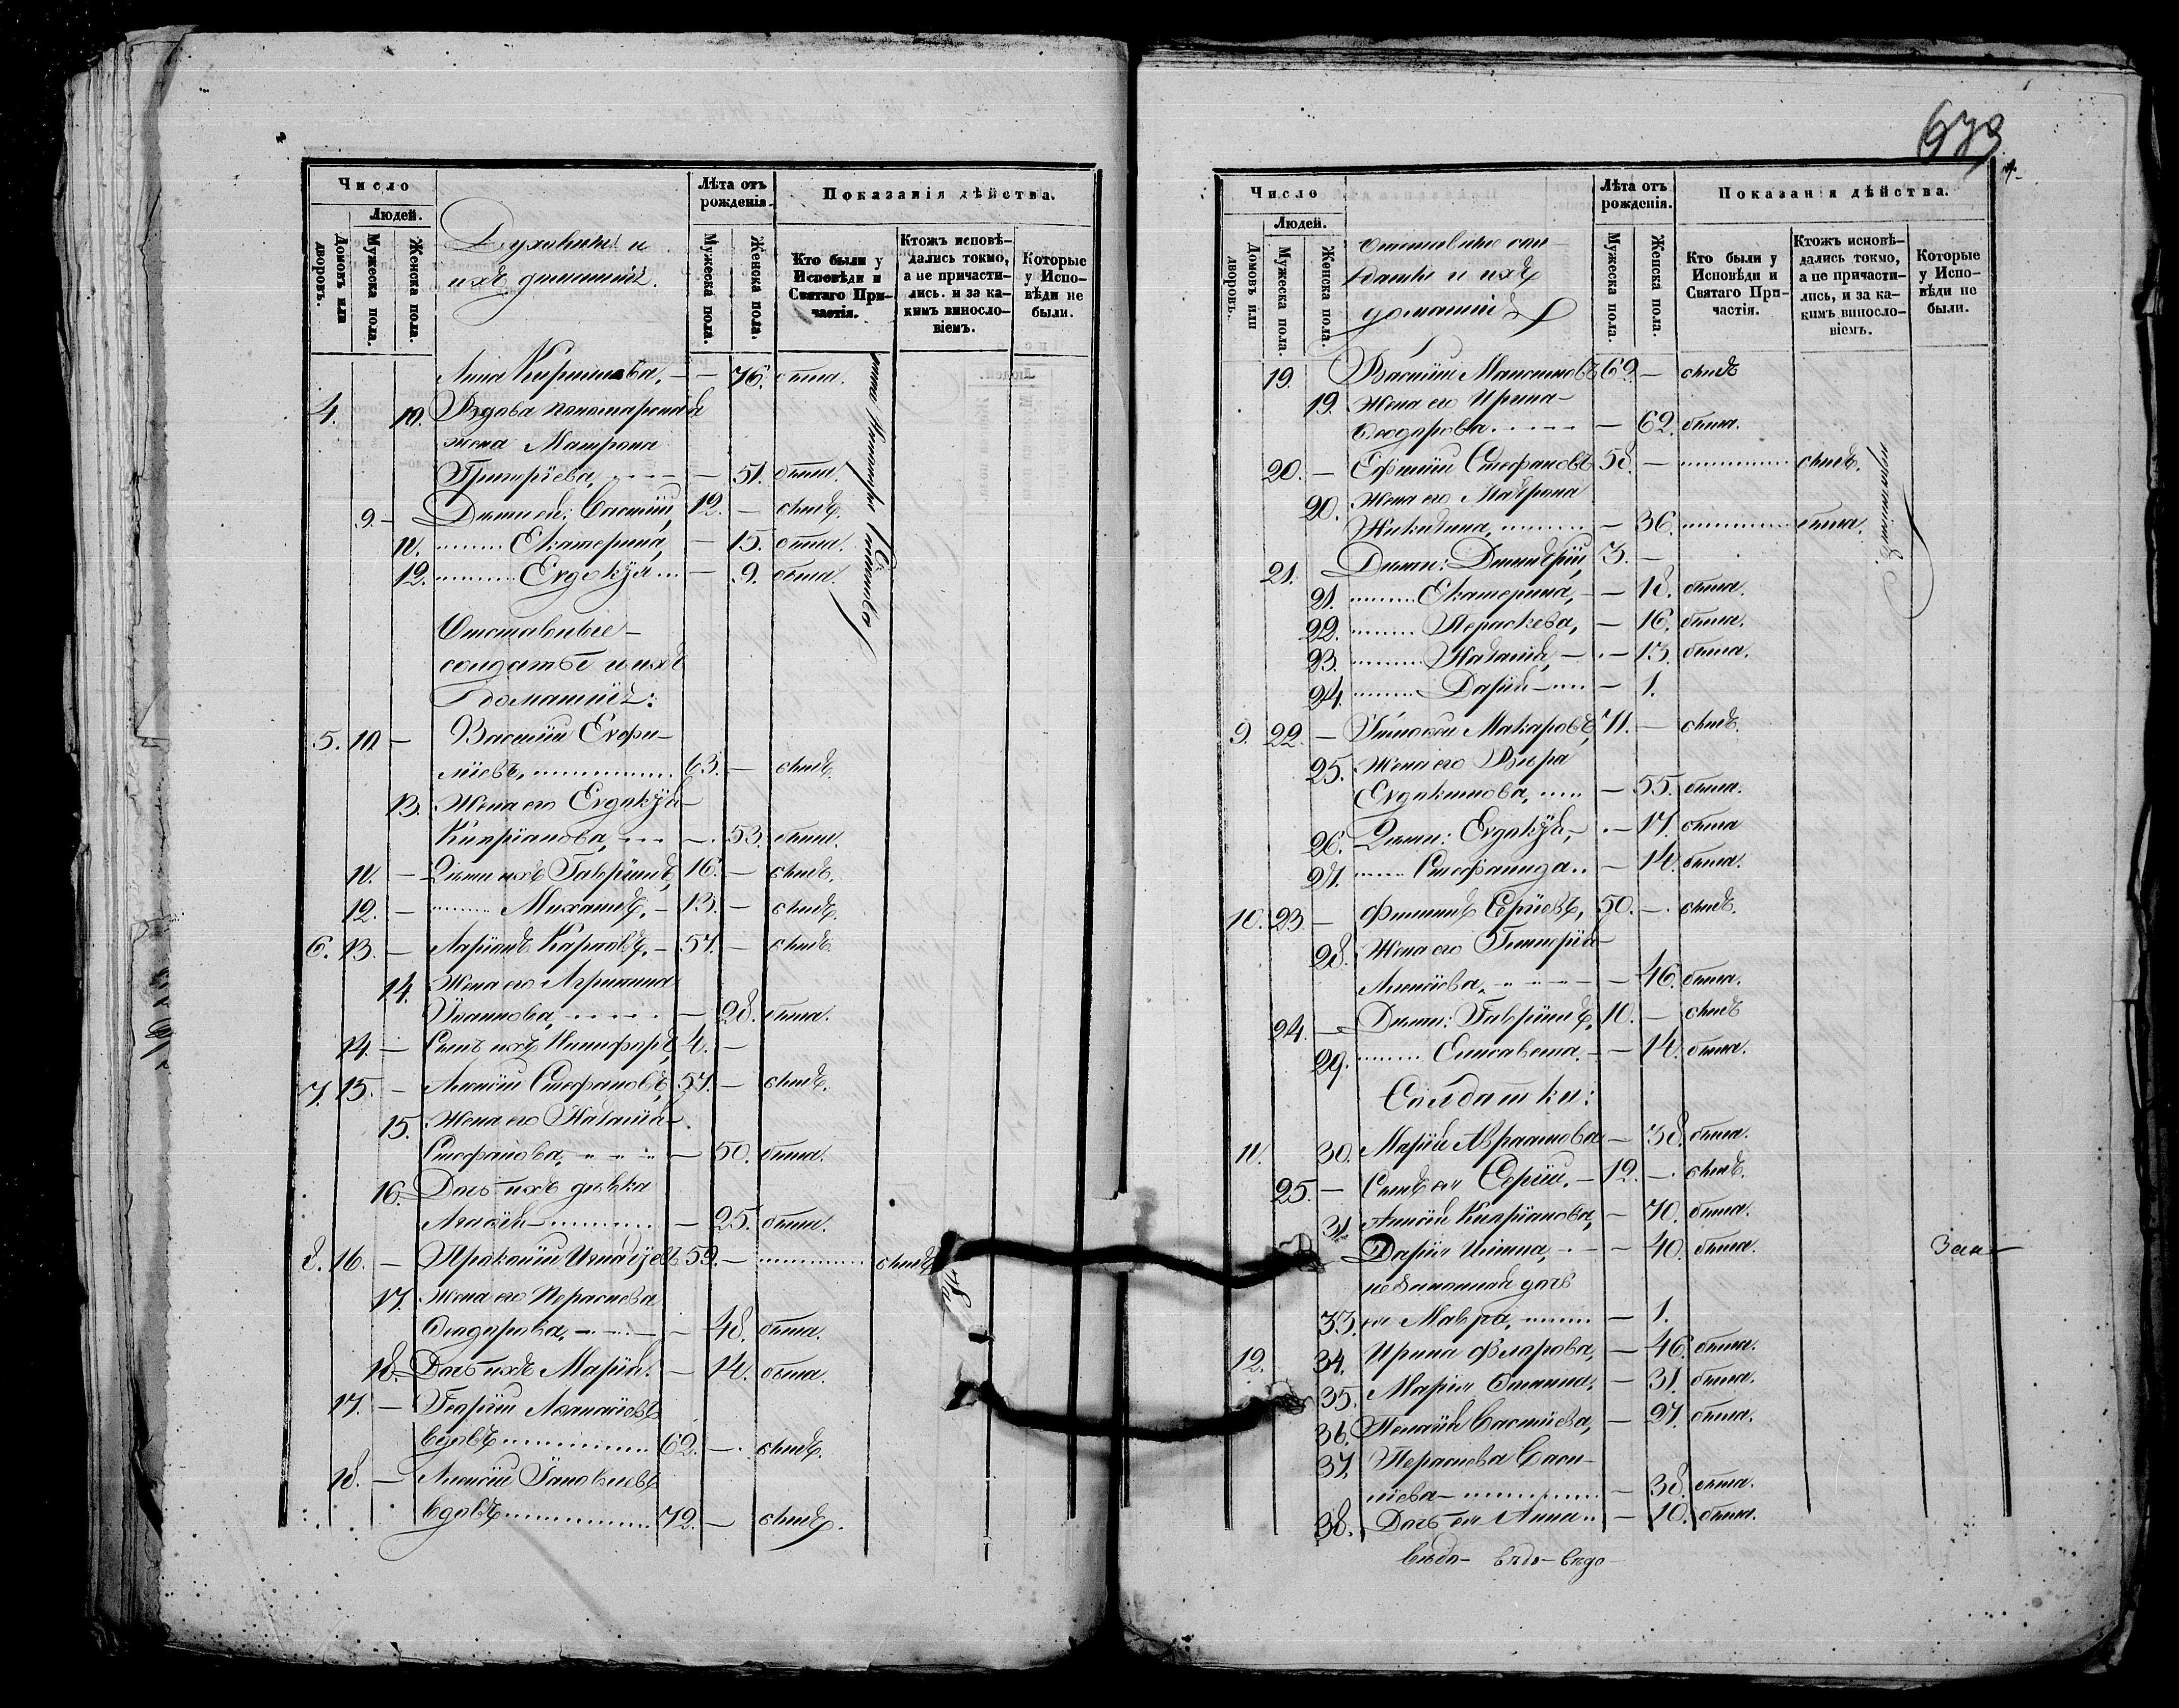 Число
Людей.
Домовъ или дворовъ.
Мужеска пола.
Женска пола.
Духовные и
ихъ домашніе.
Лѣта отъ рожденія.
Мужеска пола.
Женска пола.
Показанія дѣйства.
Кто были у Исповѣди и Святаго Причастія.
Ктожъ исповѣдались токмо, а не причастились, и за какимъ винословіемъ.
Которые у Исповѣди не были.
Анна Кириллова, — — 76. была.
4. 10. Вдова пономарская
жена Матрона
Григорьева, — 51. была.
9. — Дѣти ея: Василій, 12. — былъ.
11. Екатерина, — 15. была.
12. Евдокія — 9. была.
Отставные
солдаты и ихъ
домашніе:
5. 10 — Василій Евфи-
міевъ, 63. — былъ.
13. Жена его Евдокія
Кипріанова, — 53. была.
11. — Дѣти ихъ Гавріилъ, 16. — былъ.
12. — Михаилъ, — 13. — былъ.
6. 13. — Ларіонъ Карповъ, — 57. — былъ.
14. Жена его Агрипина
Іоаннова, — 28. была.
14. — Сынъ ихъ Никифоръ, 4. —
7. 15. — Алексій Стефановъ, 57. — былъ.
15. Жена его Наталія
Стефанова, — 50. была.
16. Дочь ихъ дѣвка
— 25. была.
8. 16. — Прокопій 59. — былъ
17. Жена его Параскева
Ѳеодорова, — 48. была.
18. Дочь ихъ Марія. — 14. была.
17. — Георгій
вдовъ 62. — былъ.
18. — Алексій
вдовъ 72. — былъ.
673
Число
Людей.
Домовъ или дворовъ.
Мужеска пола.
Женска пола.
Отставные сол-
даты и ихъ
домашніе
Лѣта отъ рожденія.
Мужеска пола.
Женска пола.
Показанія дѣйства.
Кто были у Исповѣди и Святаго Причастія.
Ктожъ исповѣдались токмо, а не причастились, и за какимъ винословіемъ.
Которые у Исповѣди не были.
19. Василій Максимовъ 62. — былъ
19. Жена его Ирина
Ѳеодорова. — 62. была.
20. — Ефимій Стефановъ 58. — былъ.
20. Жена его Матрона
Никитина, — 36. была.
21. Дѣти: Димитрій, 3. —
21. Екатерина, — 18. была.
22. Параскева, — 16. была.
23. Наталія, — 13. была.
24. Дарія — 1.
9. 22. — Макаровъ, 71. — былъ.
25. Жена его Вѣра
Евдокимова, — 55. была.
26. Дѣти: Евдокія, — 17. была
27. Стефанида — 14. была.
10. 23. — Филиппъ Сергіевъ, 50. — былъ.
28. Жена его Гликерія
Алексіева, — 46. была.
24. — Дѣти: Гавріилъ, 10. — былъ
29. Елисавета. — 14. была.
Солдатки:
11. 30. Марія Авраамова — 38. была.
25. — Сынъ ея Сергій. — 12. — былъ.
31. Кипріанова, — 70. была.
Дарія Ильина, — 40. была.
незаконная дочь
33. ея Мавра, — 1.
12. 34. Ирина Фларова, — 46. была.
35. Марія — 31. была.
36. Пелагія Василіева, — 27. была.
37. Параскева Васи-
ліева — 38. была.
38. Дочь ея Анна — 10. была.
вѣдо- вѣдо- вѣдо